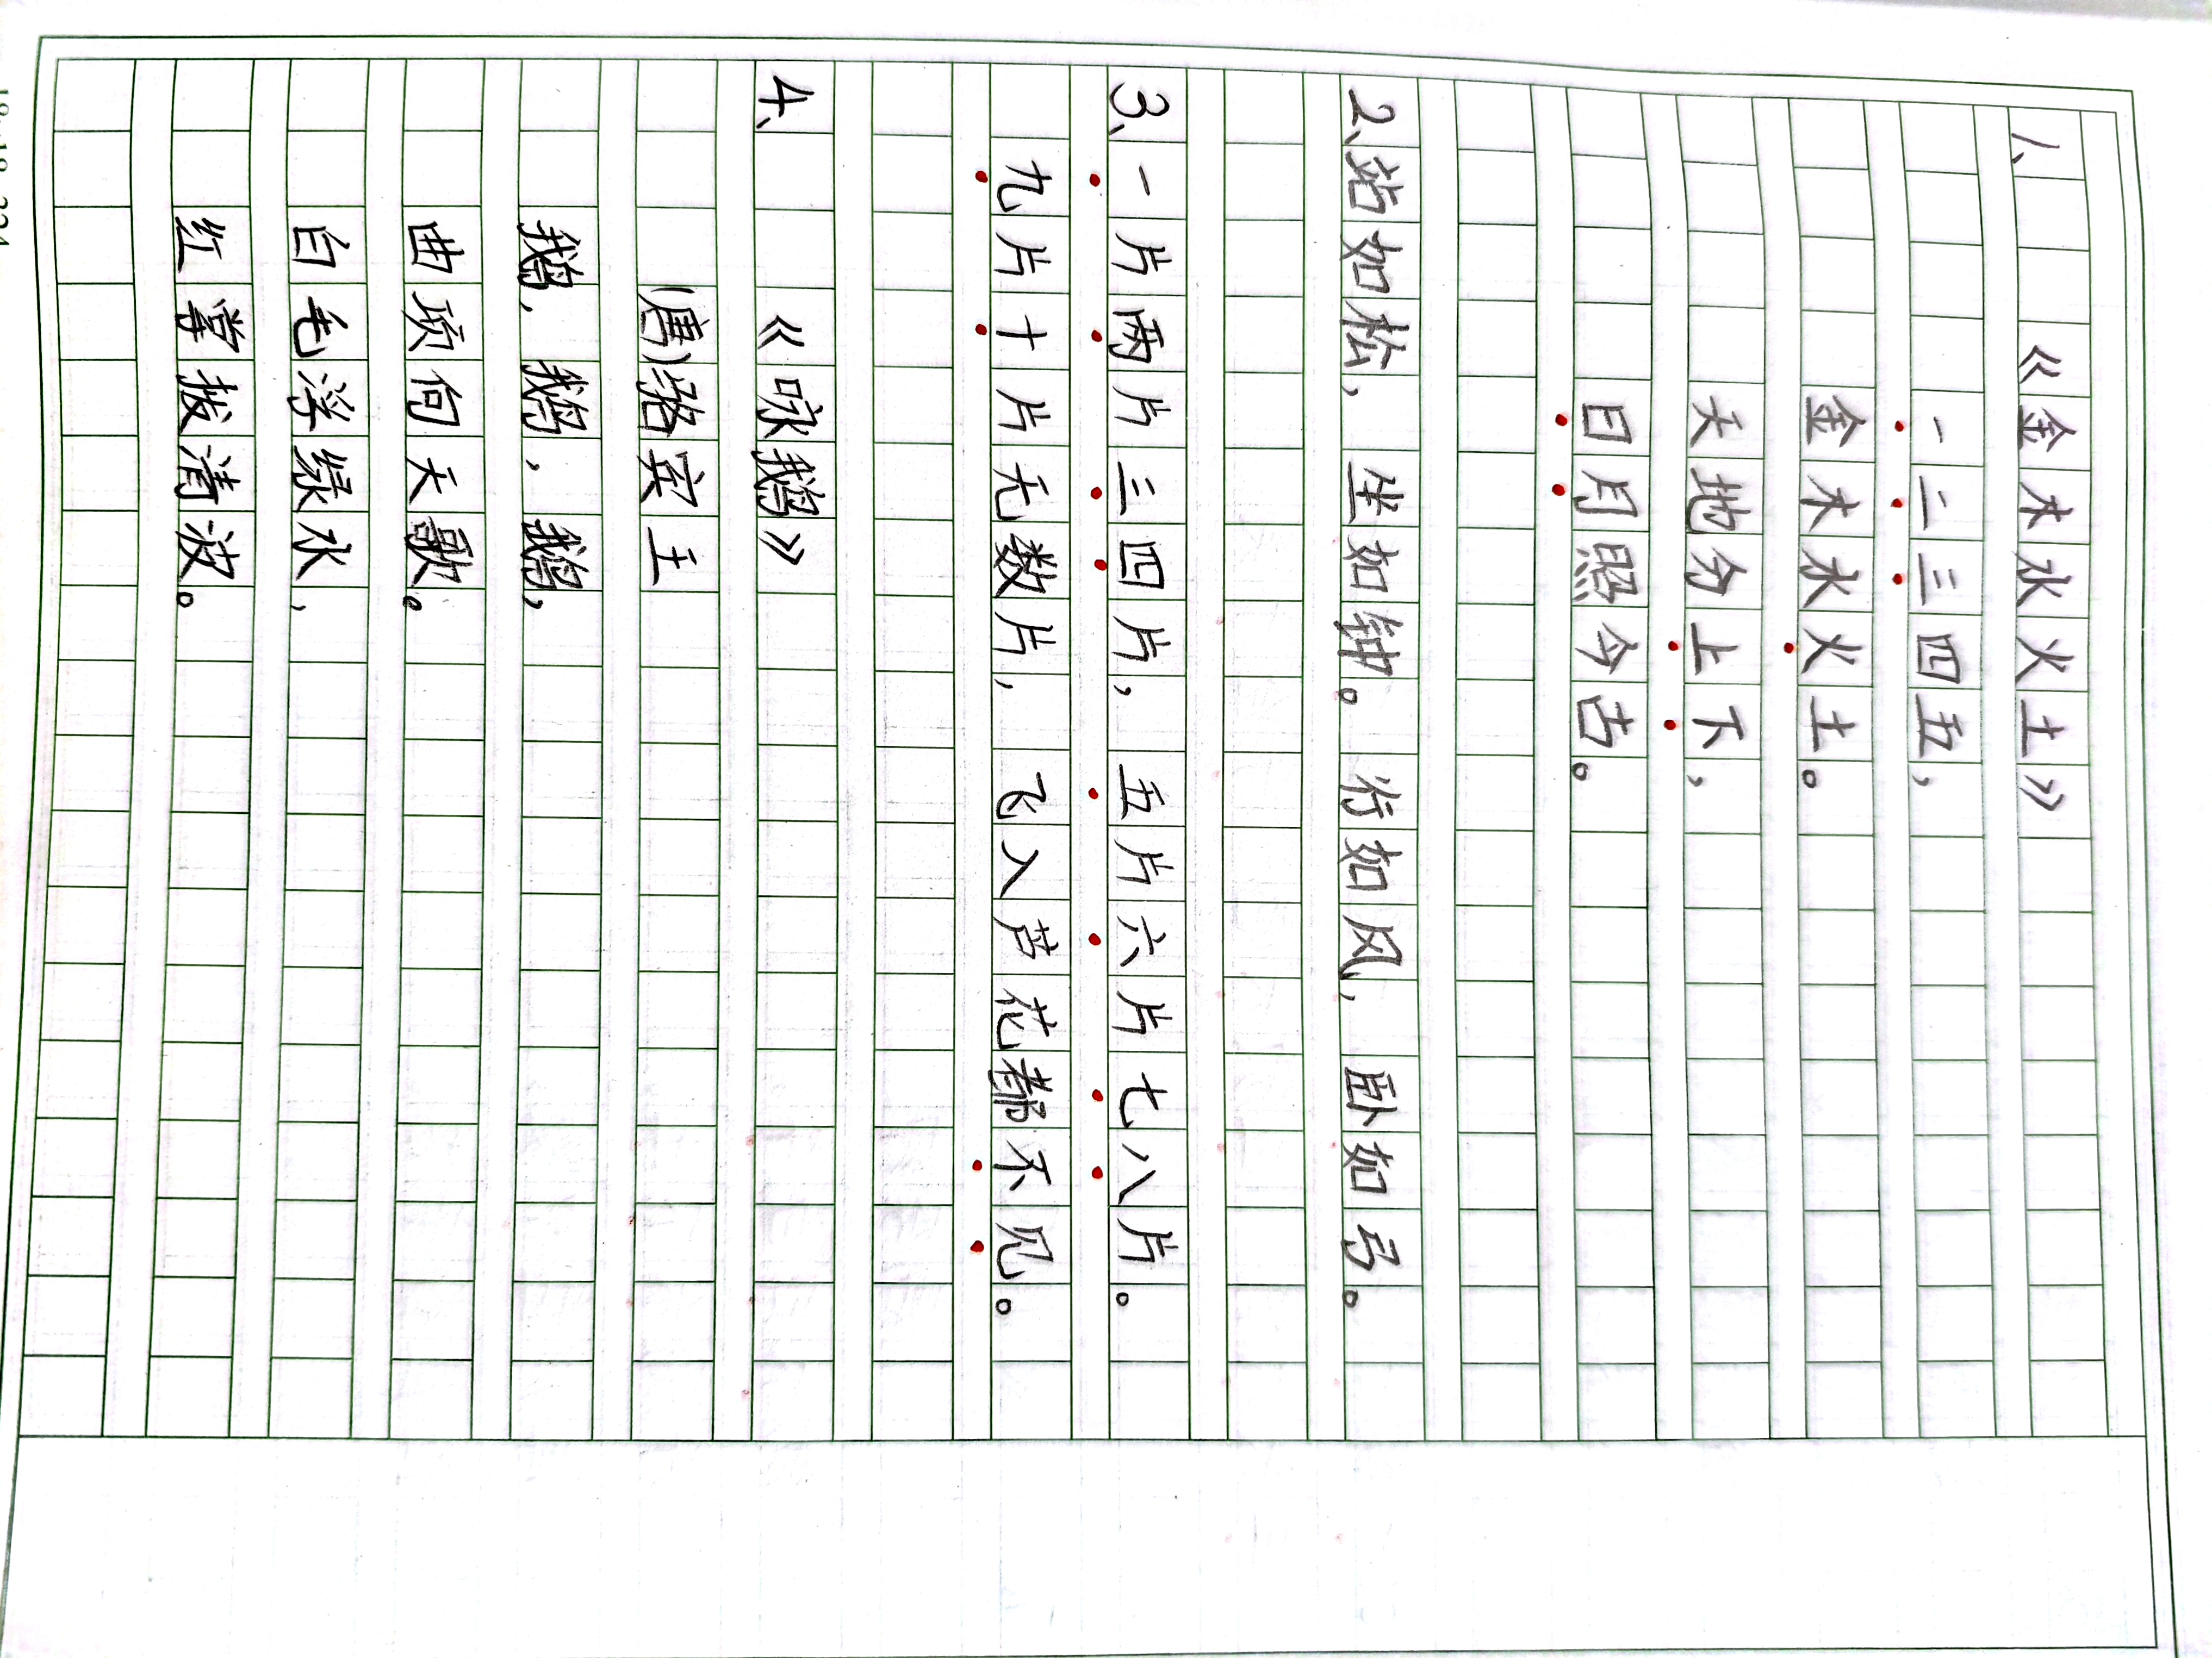 1、《金木水火土》
一二三四五，
金木水火土。
天地分上下，
日月照今古。
2、站如松，坐如钟。行如风，卧如弓。
3、一片两片三四片，五片六片七八片。
九片十片无数片，飞入芦花都不见。
4、《咏鹅》
(唐)骆宾王
鹅，鹅，鹅，
曲项向天歌。
白毛浮绿水，
红掌拨清波。